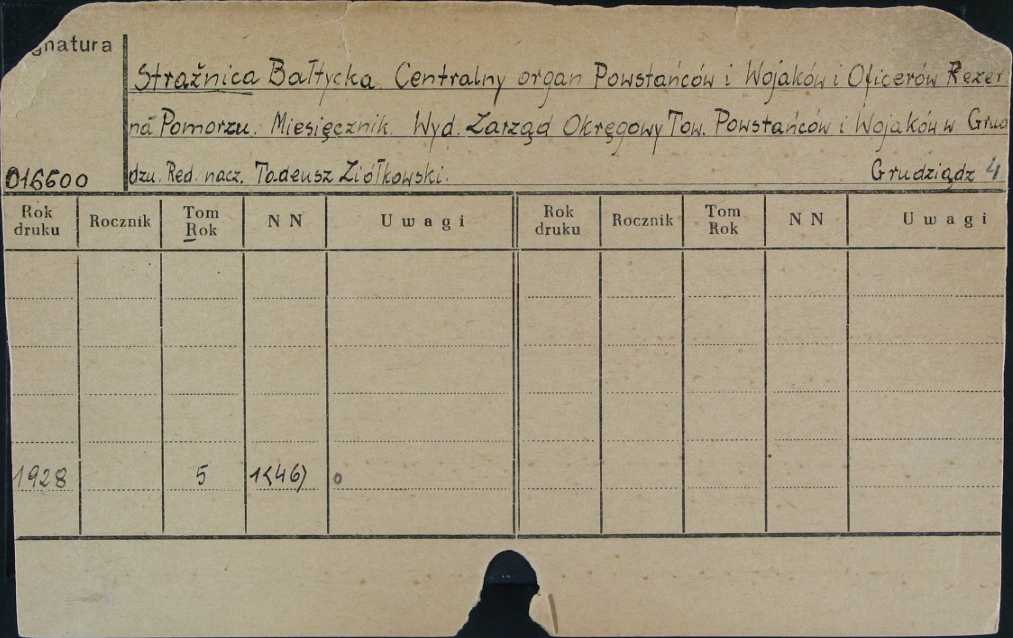 gnatura
Strażnica Bałtycka. Centralny organ Powstańców i Wojaków i Oficerów Rezer
na Pomorzu. Miesięcznik. Wyd. Zarząd Okręgowy Tow. Powstańców i Wojaków w Gru
016600 dzu. Red. nacz. Tadeusz Ziółkowski. Grudziądz 4
Rok druku Rocznik Tom Rok N N Uwagi Rok druku Rocznik Tom Rok N N Uwagi
1928 5 1(46) o